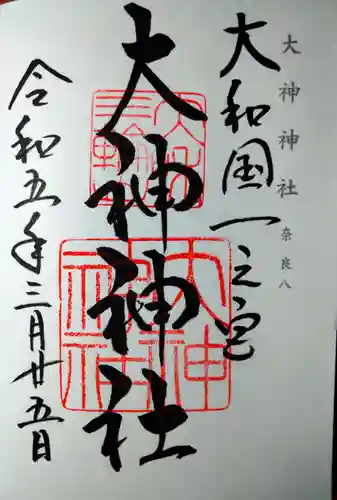 大神神社 奈良八
大和国一之宮
大神神社
令和五年三月廿五日